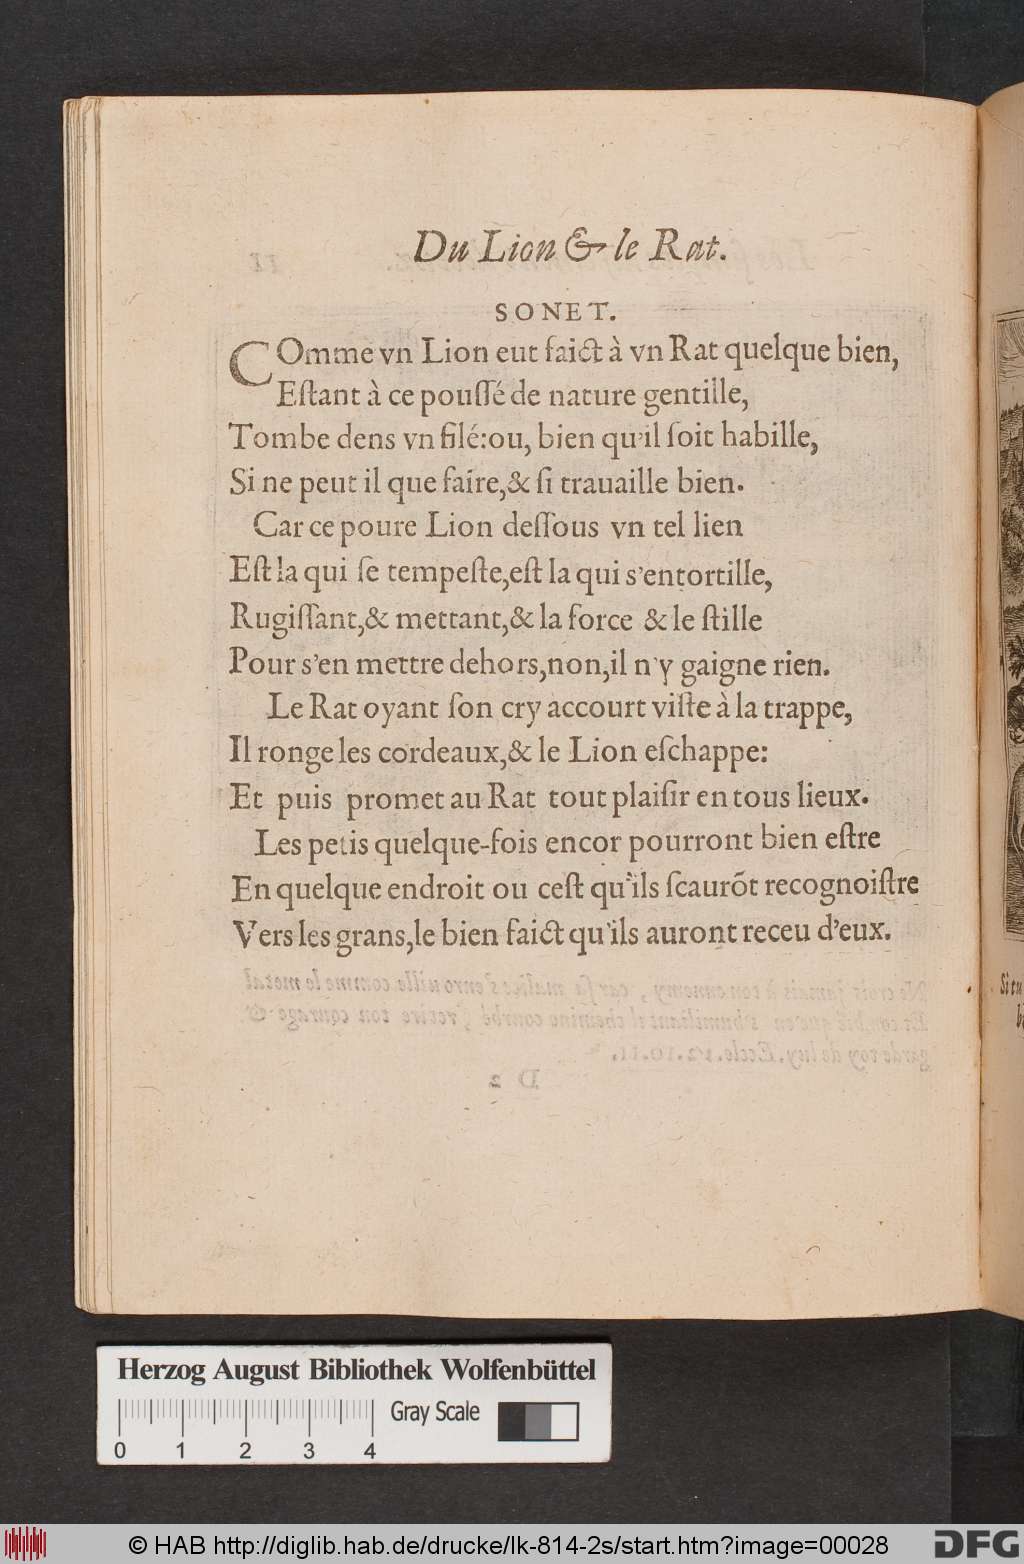 Du Lion & le Rat.
SONET.
COmme vn Lion eut faict à vn Rat quelque bien,
Eſtant à ce pouſſé de nature gentille,
Tombe dens vn filé:ou, bien qu'il ſoit habille,
Si ne peut il que faire,& ſi trauaille bien.
Car ce poure Lion deſſous vn tel lien
Eſt la qui ſe tempeſte,eſt la qui s'entortille,
Rugiſſant,& mettant,& la force & le ſtille
Pour s'en mettre dehors,non,il n'y gaigne rien.
Le Rat oyant ſon cry accourt viſte à la trappe,
Il ronge les cordeaux,& le Lion eſchappe:
Et puis promet au Rat tout plaiſir en tous lieux.
Les petis quelque-fois encor pourront bien eſtre
En quelque endroit ou ceſt qu'ils ſcaurõt recognoiſtre
Vers les grans,le bien faict qu'ils auront receu d'eux.
Si tu
Herzog August Bibliothek Wolfenbüttel
Gray Scale
0 1 2 3 4
© HAB http://diglib.hab.de/drucke/lk-814-2s/start.htm?image=00028
DFG